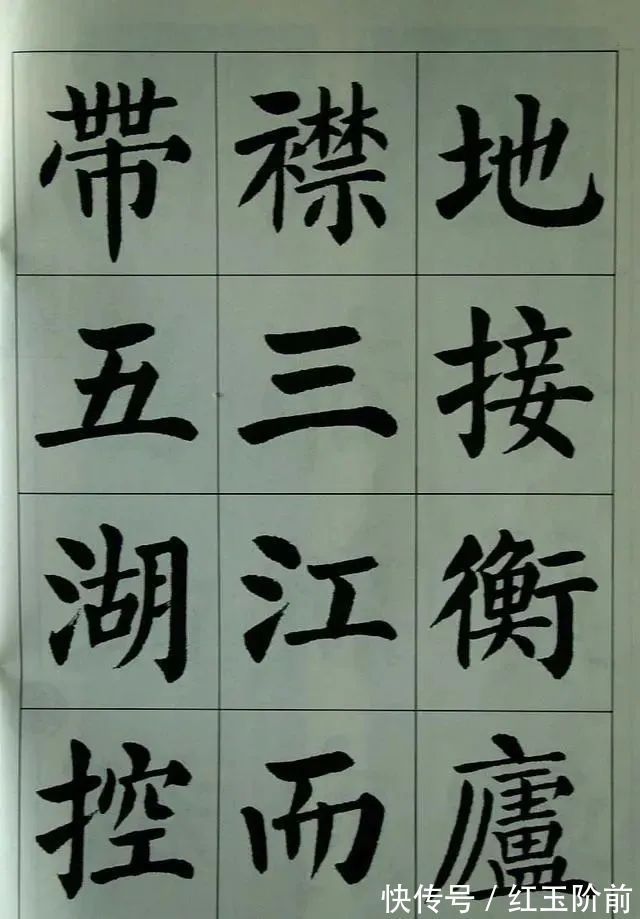 地接衡廬
襟三江而
帶五湖控
快传号／红玉阶前